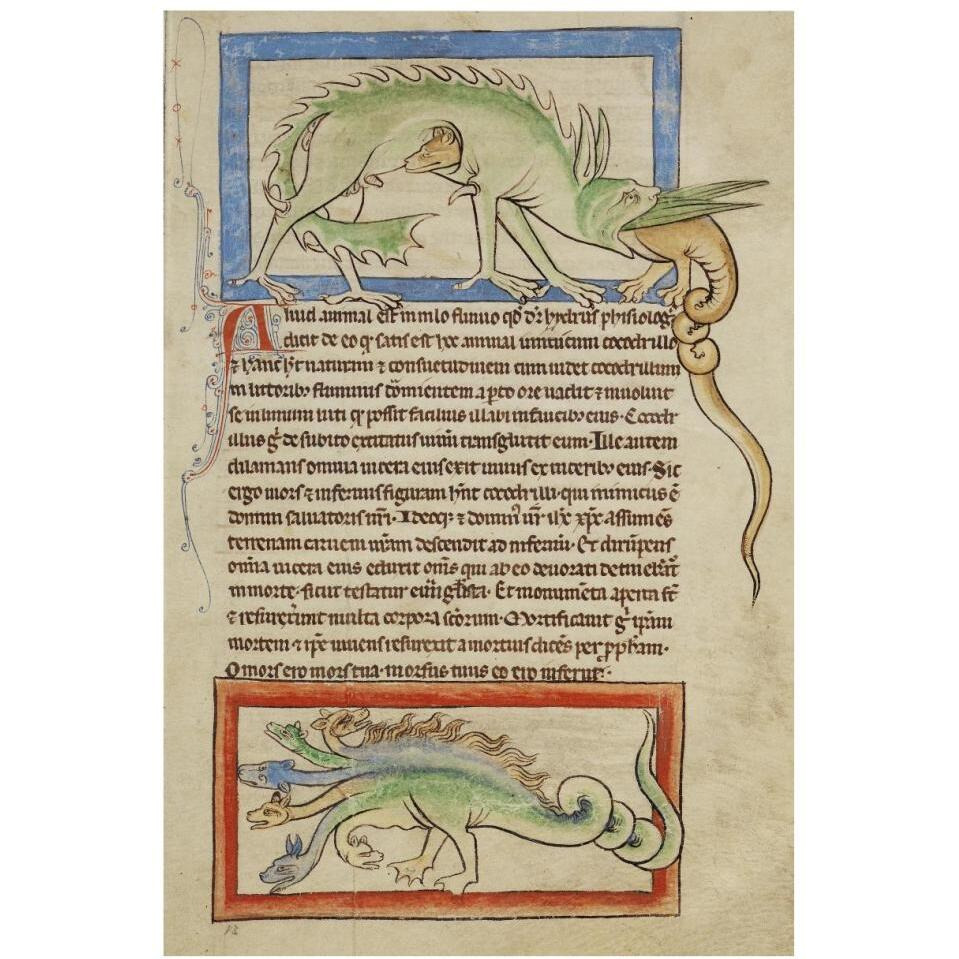 Aliud animal est in nilo flumine qđ dr̄ hydrus phisiolog᷒
dicit de eo qr satis est hec animal inimicum cocodrillo
⁊ hanc hr̄ naturam ⁊ consuetudinem cum uidet cocodrillum
in littoribꝫ fluminis dormientem aꝑto ore uadit ⁊ inuoluit
se in limum luti qr possit facilius illabi in faucibꝫ eius. Cocodr
illus g̊ de subito excitatus uiuū transglutit eum. Ille autem
dilanians omnia uiscera eius exit uiuus ex uisceribꝫ eius. Sic
ergo mors ⁊ infernus figuram hn̄t cocodrilli. qui inimicus ē
domini saluatoris nr̄i. Ideoqꝫ ⁊ dominꝰ nr̄ ihc xp̄c assumēs
terrenam carnem nr̄am descendit ad infernū. Et dirūpens
om̄ia uiscera eius eduxit om̄s qui ab eo deuorati detinebāt᷒
in morte. sicut testatur euuāglista. Et monumēta aperta st̄
⁊ resurrexerunt multa corpora sc̄orum. Mortificauit g̊ ip̄am
mortem. ⁊ ip̄e uiuens resurrexit a mortuis dicēs per ꝓpham.
O mors ero mors tua. morsus tuus eo ero inferne.
13